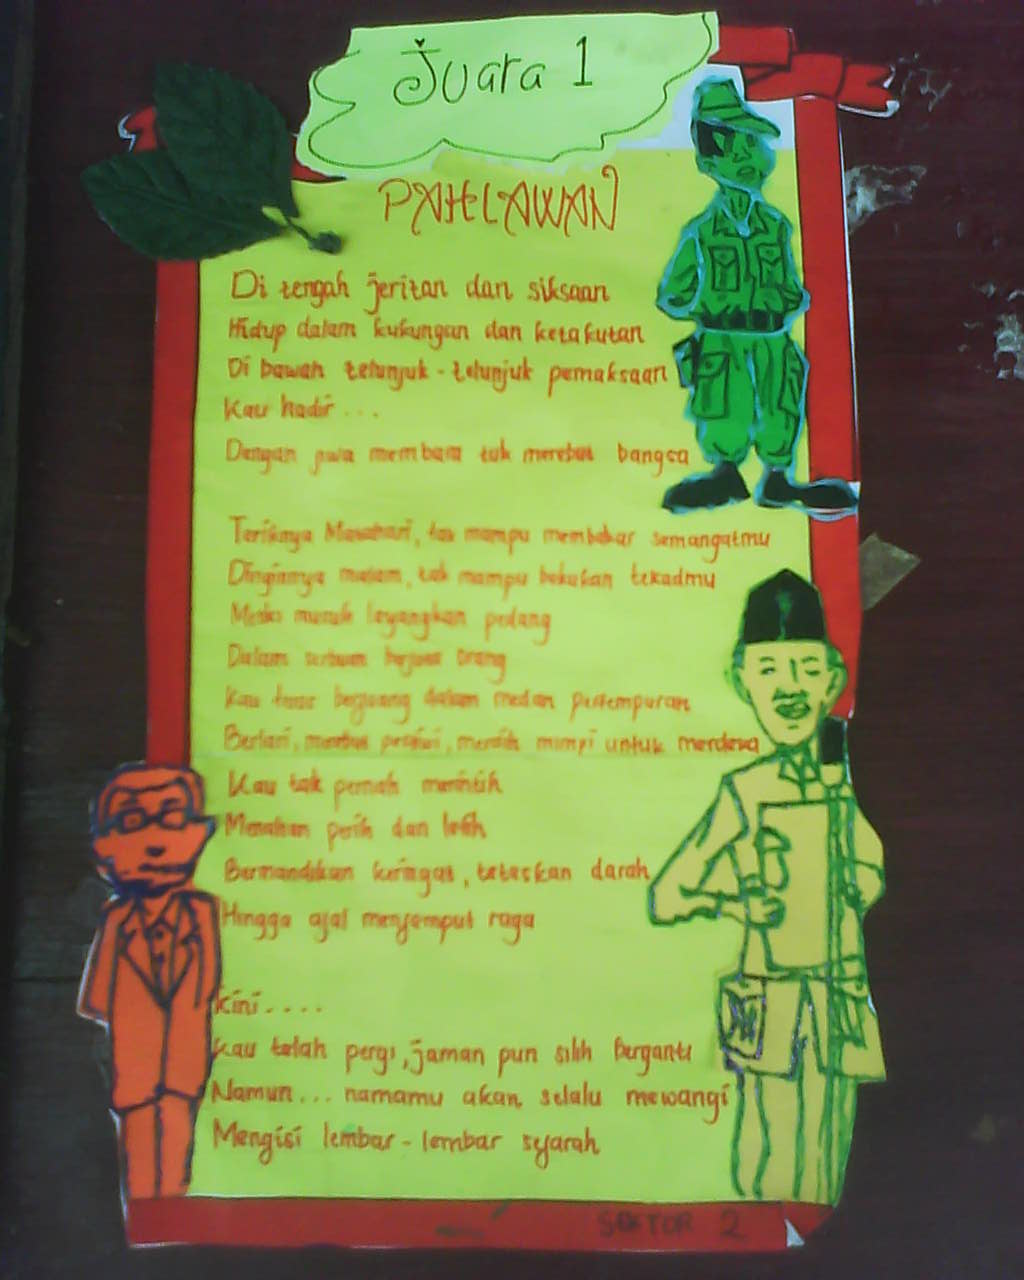 Juara 1
PAHLAWAN
Di tengah jeritan dan siksaan
Hidup dalam kukungan dan ketakutan
Di bawah telunjuk - telunjuk pemaksaan
Kau hadir ...
Dengan jiwa membara tuk merebut bangsa
Teriknya Matahari, tak mampu membakar semangatmu
Dinginnya malam, tak mampu bekukan tekadmu
Meski musuh layangkan pedang
Dalam serbuan berjuta orang
Kau terus berjuang dalam medan pertempuran
Berlari, merebut posisi, meraih mimpi untuk merdeka
Kau tak pernah merintih
Menahan perih dan letih
Bermandikan keringat, teteskan darah
Hingga ajal menjemput raga
Kini ....
Kau telah pergi, jaman pun silih berganti
Namun ... namamu akan selalu mewangi
Mengisi lembar - lembar sejarah
SEKTOR 2